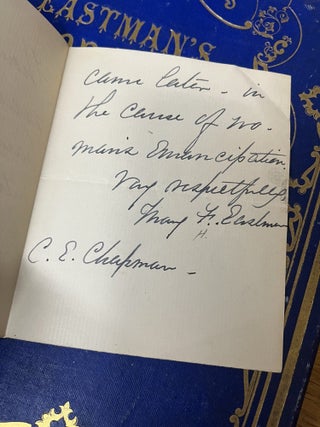 EASTMAN'S
came later - in
the cause of wo-
man's Emancipation.
Very respectfully,
Mary F. Eastman
H.
C. E. Chapman -